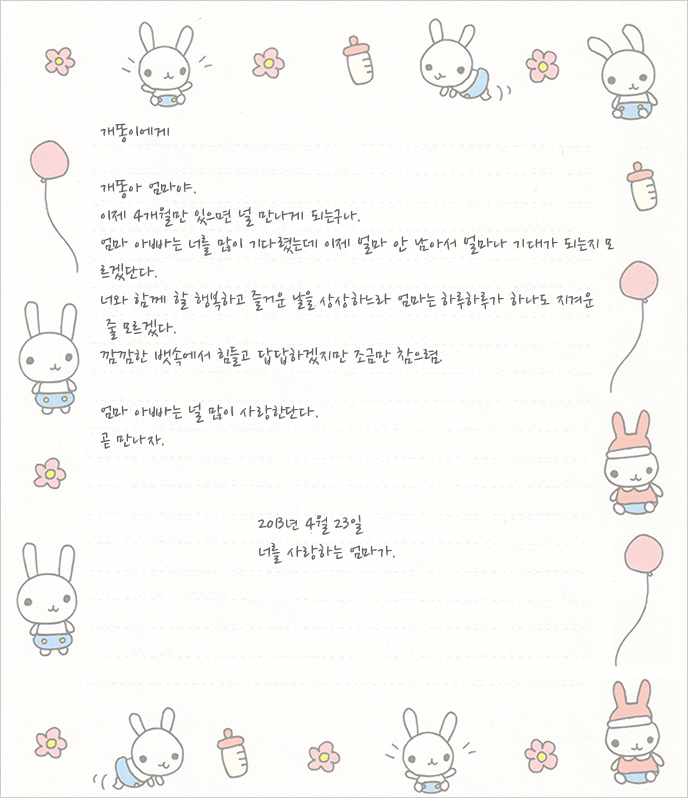 개똥이에게
개똥아 엄마야.
이제 4개월만 있으면 널 만나게 되는구나.
엄마 아빠는 너를 많이 기다렸는데 이제 얼마 안 남아서 얼마나 기대가 되는지 모
르겠단다.
너와 함께 할 행복하고 즐거운 날을 상상하느라 엄마는 하루하루가 하나도 지겨운
줄 모르겠다.
깜깜한 뱃속에서 힘들고 답답하겠지만 조금만 참으렴.
엄마 아빠는 널 많이 사랑한단다.
곧 만나자.
2013년 4월 23일
너를 사랑하는 엄마가.